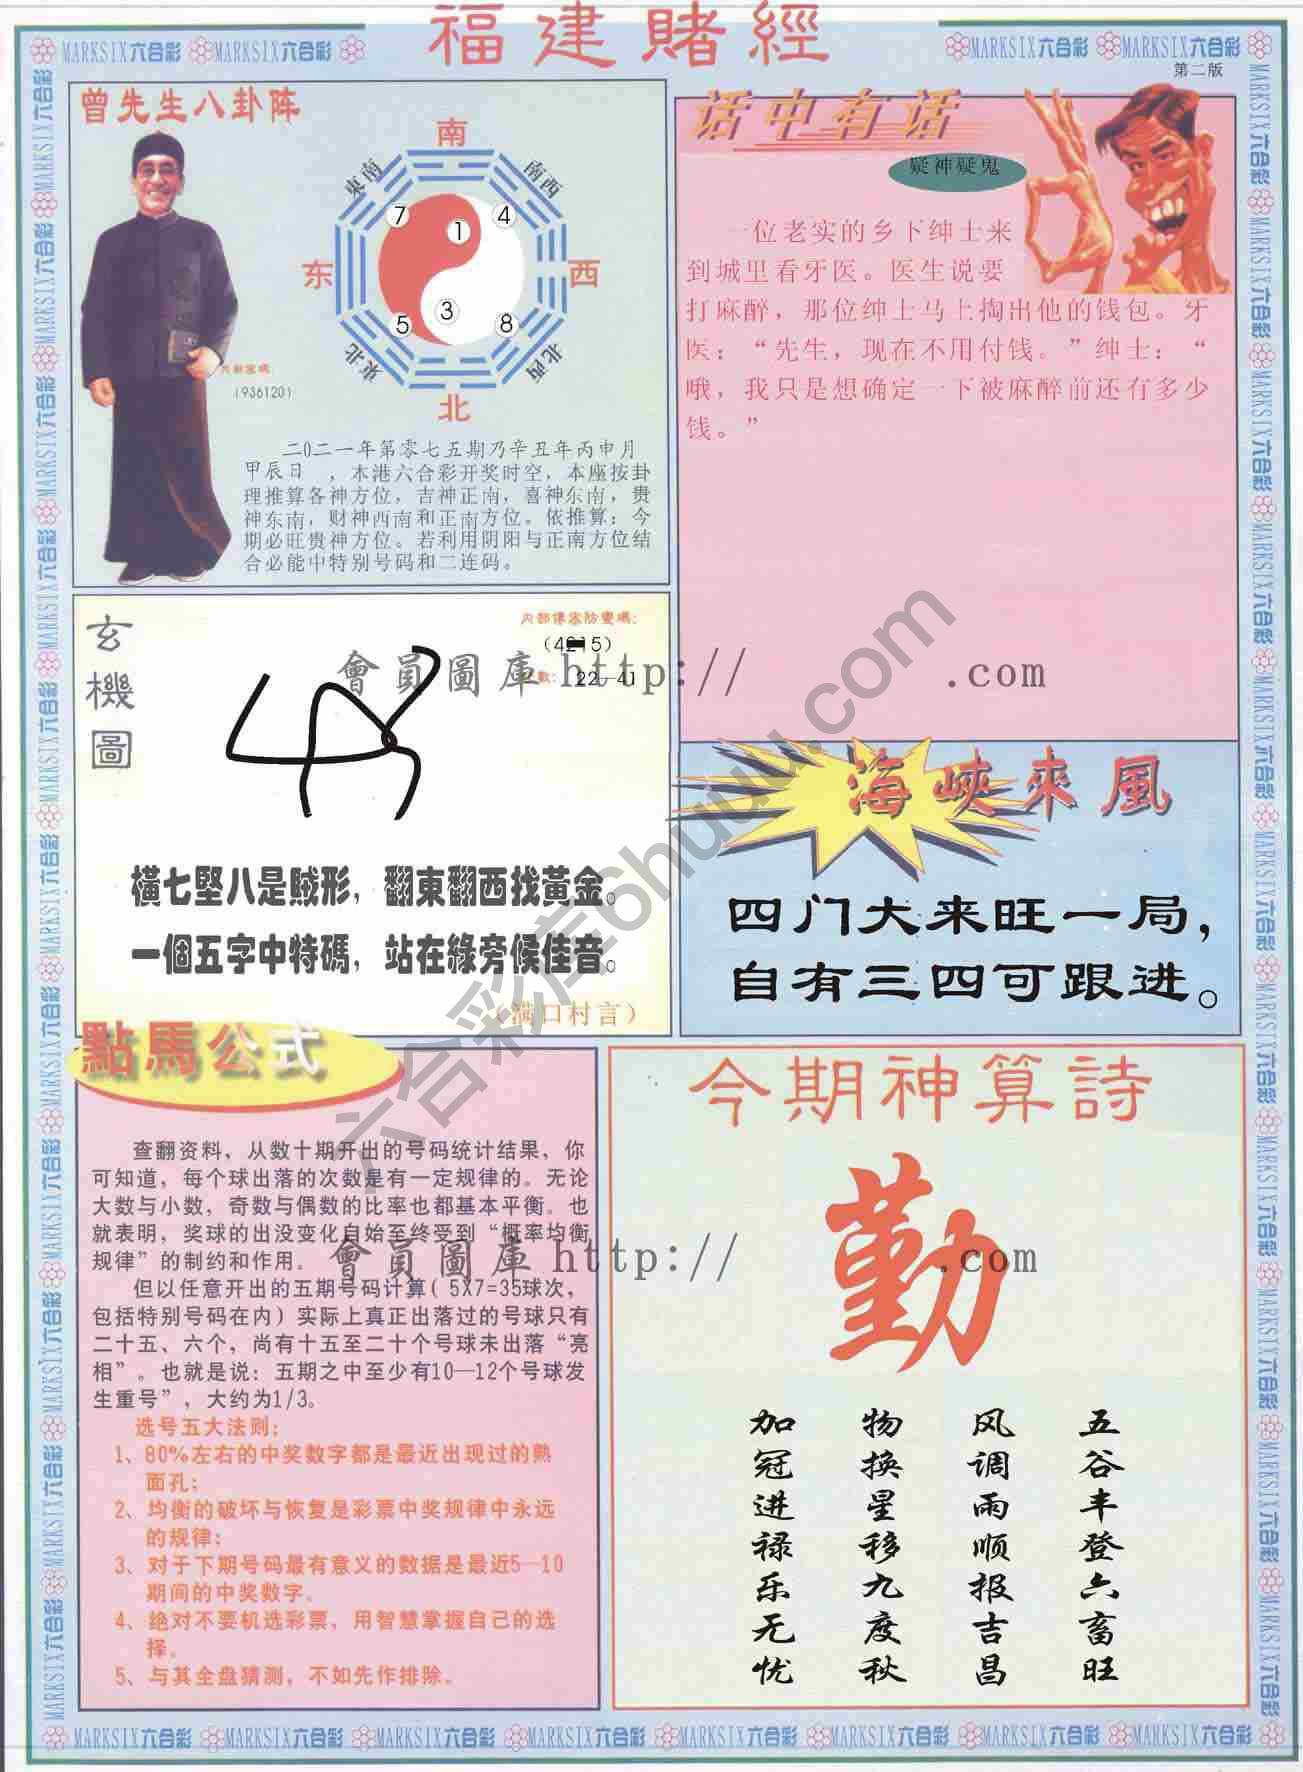 福建賭經
MARKSIX六合彩 MARKSIX六合彩
MARKSIX六合彩 MARKSIX六合彩
第二版
曾先生八卦阵
南
東南
南西
7
1
4
东
西
5
3
8
東北
北西
北
(936120)
二〇二一年第零七五期乃辛丑年丙申月
甲辰日 ，本港六合彩开奖时空，本座按卦
理推算各神方位，吉神正南，喜神东南，贵
神东南，财神西南和正南方位。依推算：今
期必旺贵神方位。若利用阴阳与正南方位结
合必能中特别号码和二连码。
话中有话
疑神疑鬼
一位老实的乡下绅士来
到城里看牙医。医生说要
打麻醉，那位绅士马上掏出他的钱包。牙
医：“先生，现在不用付钱。”绅士：“
哦，我只是想确定一下被麻醉前还有多少
钱。”
玄機圖
22—41
會員圖庫 http:// .com
橫七堅八是賊形，翻東翻西找黃金。
一個五字中特碼，站在緣旁候佳音。
（满口村言）
海峽來風
四门大来旺一局，
自有三四可跟进。
六合彩库6huuu.com
點馬公式
查翻资料，从数十期开出的号码统计结果，你
可知道，每个球出落的次数是有一定规律的。无论
大数与小数，奇数与偶数的比率也都基本平衡。也
就表明，奖球的出没变化自始至终受到“概率均衡
规律”的制约和作用。
會員圖庫 http:// .com
但以任意开出的五期号码计算( 5X7=35球次，
包括特别号码在内）实际上真正出落过的号球只有
二十五、六个，尚有十五至二十个号球未出落“亮
相”。也就是说：五期之中至少有10—12个号球发
生重号”，大约为1/3。
选号五大法则：
1、80%左右的中奖数字都是最近出现过的熟
面孔；
2、均衡的破坏与恢复是彩票中奖规律中永远
的规律；
3、对于下期号码最有意义的数据是最近5—10
期间的中奖数字。
4、绝对不要机选彩票，用智慧掌握自己的选
择。
5、与其全盘猜测，不如先作排除。
今期神算詩
勤
五谷丰登六畜旺
风调雨顺报吉昌
物换星移九度秋
加冠进禄乐无忧
MARKSIX六合彩 MARKSIX六合彩 MARKSIX六合彩 MARKSIX六合彩 MARKSIX六合彩 MARKSIX六合彩 MARKSIX六合彩 MARKSIX六合彩